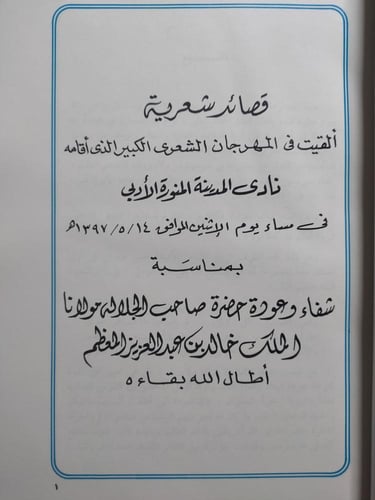 قصائد شعرية
ألقيت فى المهرجان الشعرى الكبير الذى أقامه
نادى المدينة المنورة الأدبي
فى مساء يوم الإثنين الموافق ١٣٩٧/٥/١٤هـ
بمناسبة
شفاء وعودة حضرة صاحب الجلالة مولانا
الملك خالد بن عبد العزيز المعظم
أطال الله بقاءه
١